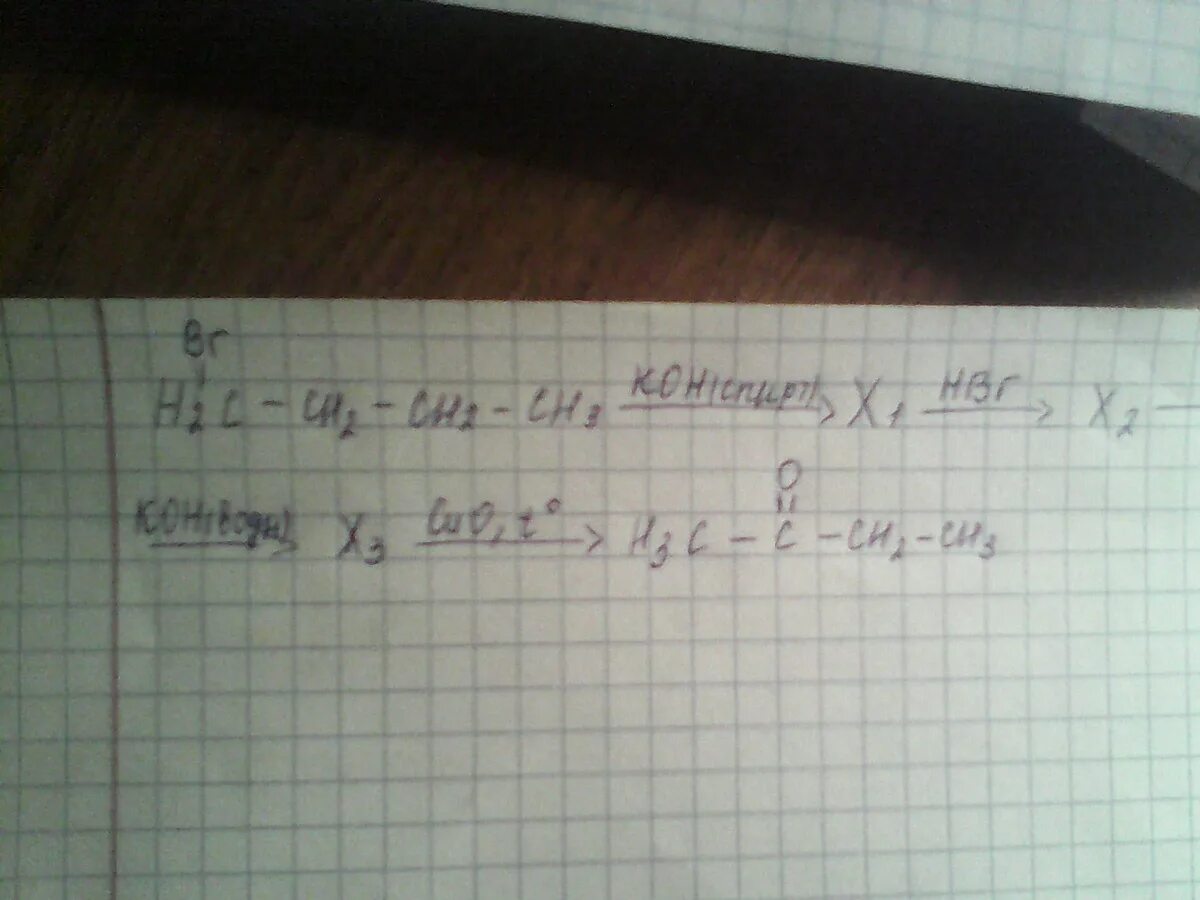 Br
H₂C – CH₂ – CH₂ – CH₃ KOH(спирт)→ X₁ HBr→ X₂ –
O
KOH(водн)→ X₃ CuO, t°→ H₃C – C – CH₂ – CH₃